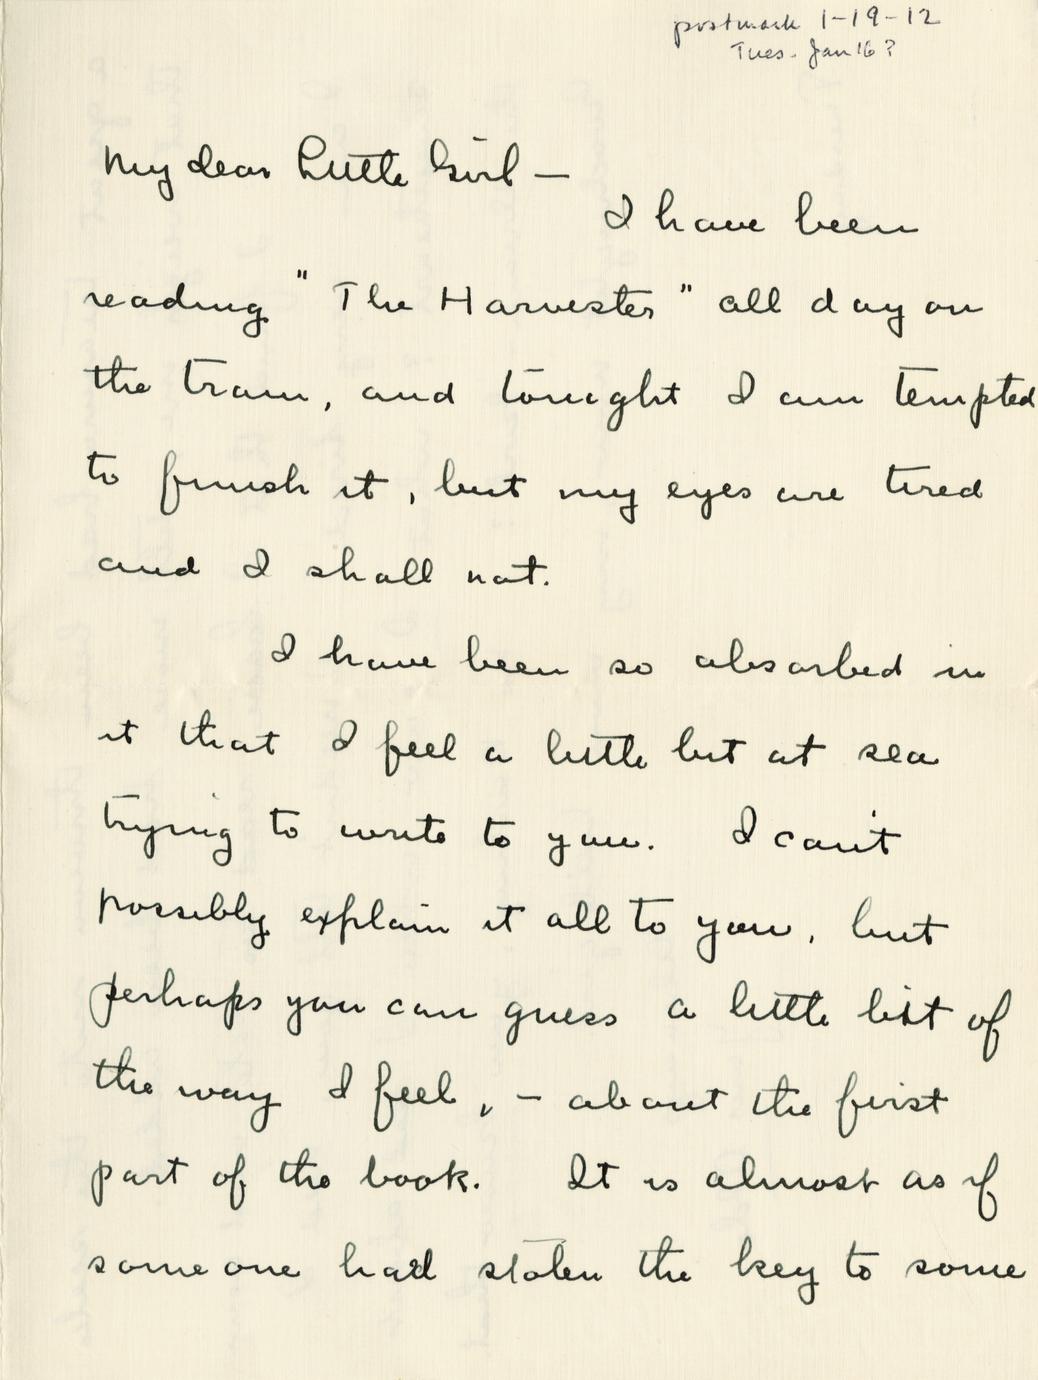 postmark 1-19-12
Tues. Jan 16?
My dear Little Girl —
I have been
reading "The Harvester" all day on
the train, and tonight I am tempted
to finish it, but my eyes are tired
and I shall not.
I have been so absorbed in
it that I feel a little bit at sea
trying to write to you. I can't
possibly explain it all to you, but
perhaps you can guess a little bit of
the way I feel, — about the first
part of the book. It is almost as if
someone had stolen the key to some